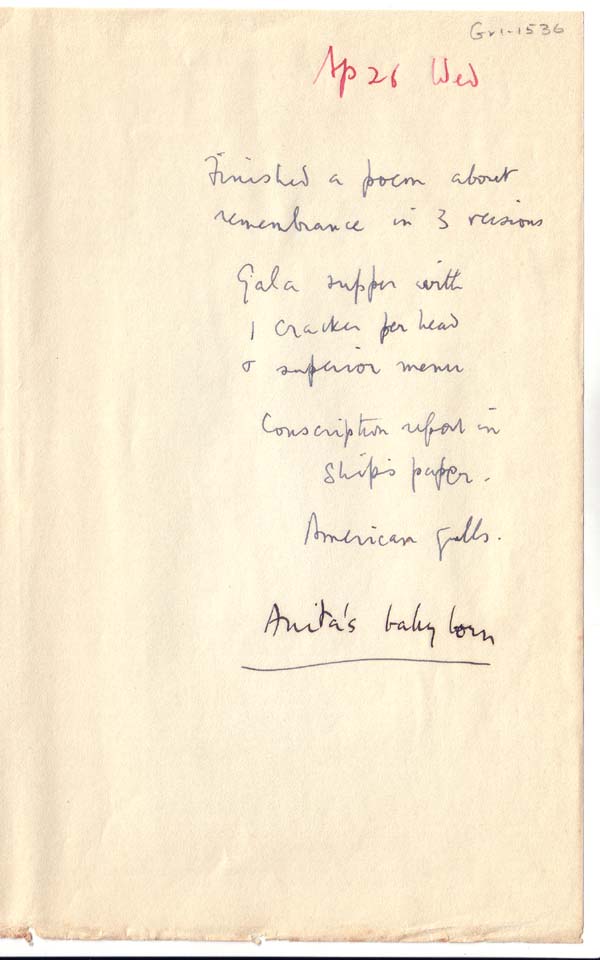 Gr1-1536
Ap 26 Wed
Finished a poem about
remembrance in 3 versions
Gala supper with
1 cracker per head
& superior menu
Conscription report in
Ship's paper.
American gulls.
Anita's baby born